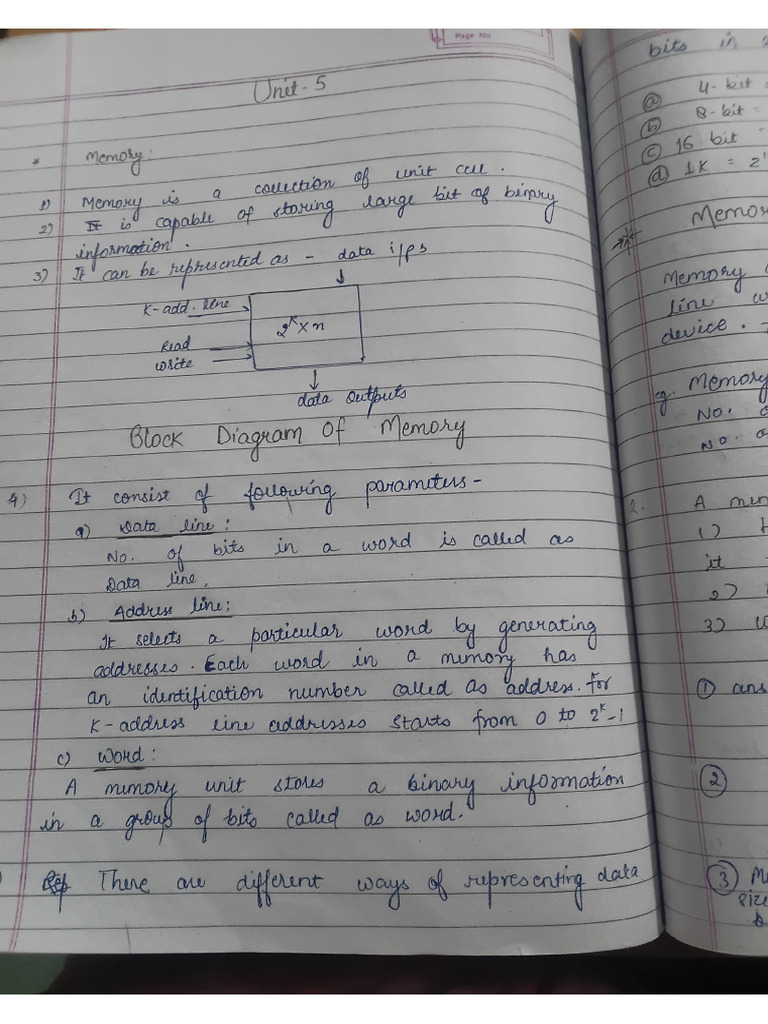 Page No
Unit-5
* Memory:
1) Memory is a collection of unit cell.
2) It is capable of storing large bit of binary
information.
3) It can be represented as - data i/ps
K-add. line
2^K x n
Read
write
data outputs
Block Diagram Of Memory
4) It consist of following parameters -
a) Data line:
No. of bits in a word is called as
Data line.
b) Address line:
It selects a particular word by generating
addresses. Each word in a memory has
an identification number called as address. For
K-address line addresses starts from 0 to 2^K-1
c) Word:
A memory unit stores a binary information
in a group of bits called as word.
There are different ways of representing data
bits in
a) 4-bit =
b) 8-bit =
c) 16-bit
d) 1K = 2
Memor
Memory
line w
device.
eg. Memory
No. o
No. o
2. A mem
1)
it
2)
3)
① ans
②
③ Me
size